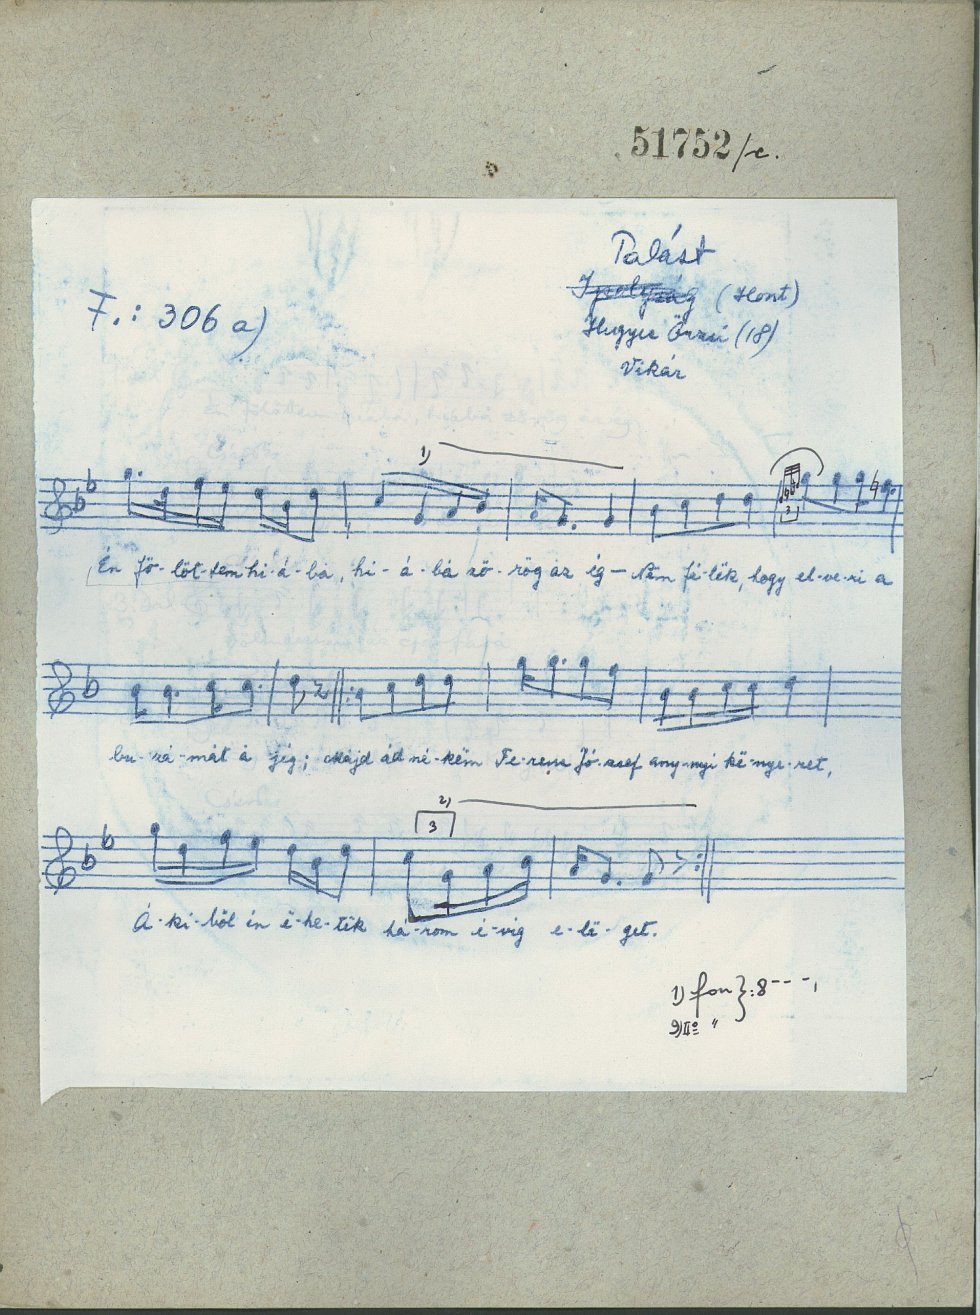 51752/c.
Palást
Ipolyság (Hont)
F.: 306 a)
Hugyec Örzsi (18)
Vikár
1)
3
Én fö-löt-tem hi-á-bá, hi-á-bá zö-rög az ég — Nëm fé-lëk, hogy el-ve-ri a
bu-zá-mát á jég; Májd ád né-këm Fe-renc Jó-zsef any-nyi kë-nye-ret,
2)
3
Á-ki-ből én ë-he-tëk há-rom é-vig e-lé-get.
1) fon }: 8 - - -,
2) IIº "